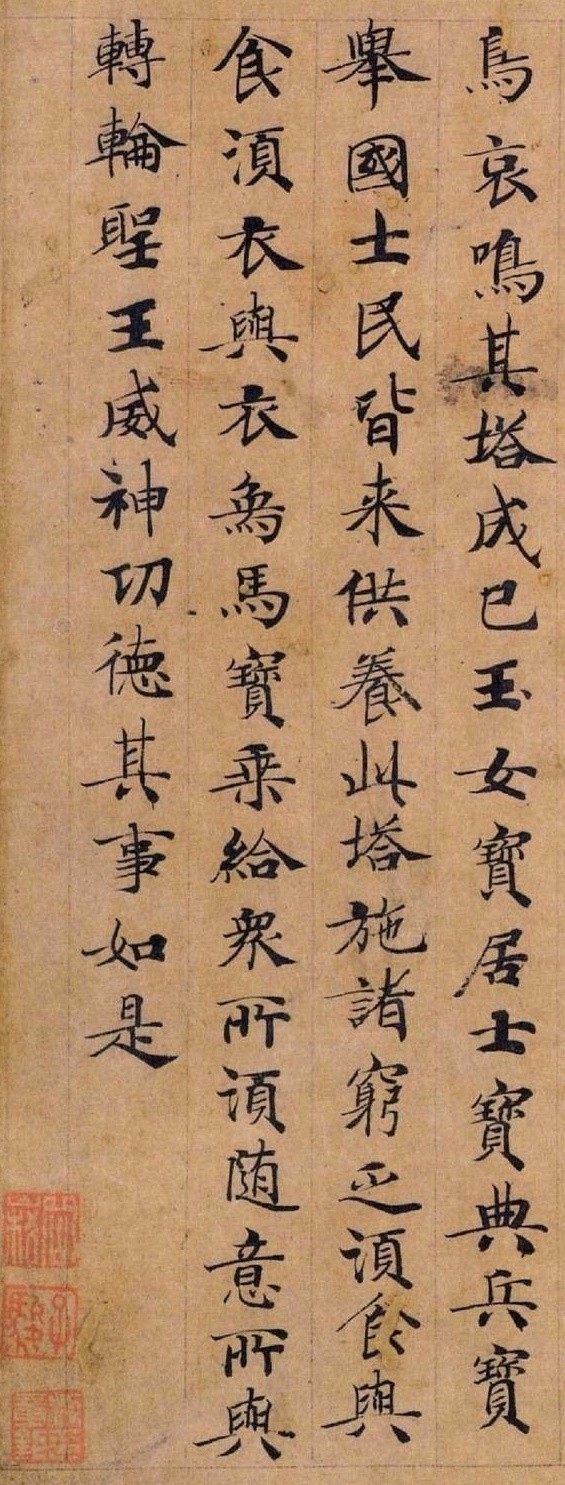 鳥哀鳴其塔成已玉女寶居士寶典兵寶
舉國士民皆来供養此塔施諸窮乏須食與
食須衣與衣象馬寶乗給衆所須随意所與
轉輪聖王威神功德其事如是